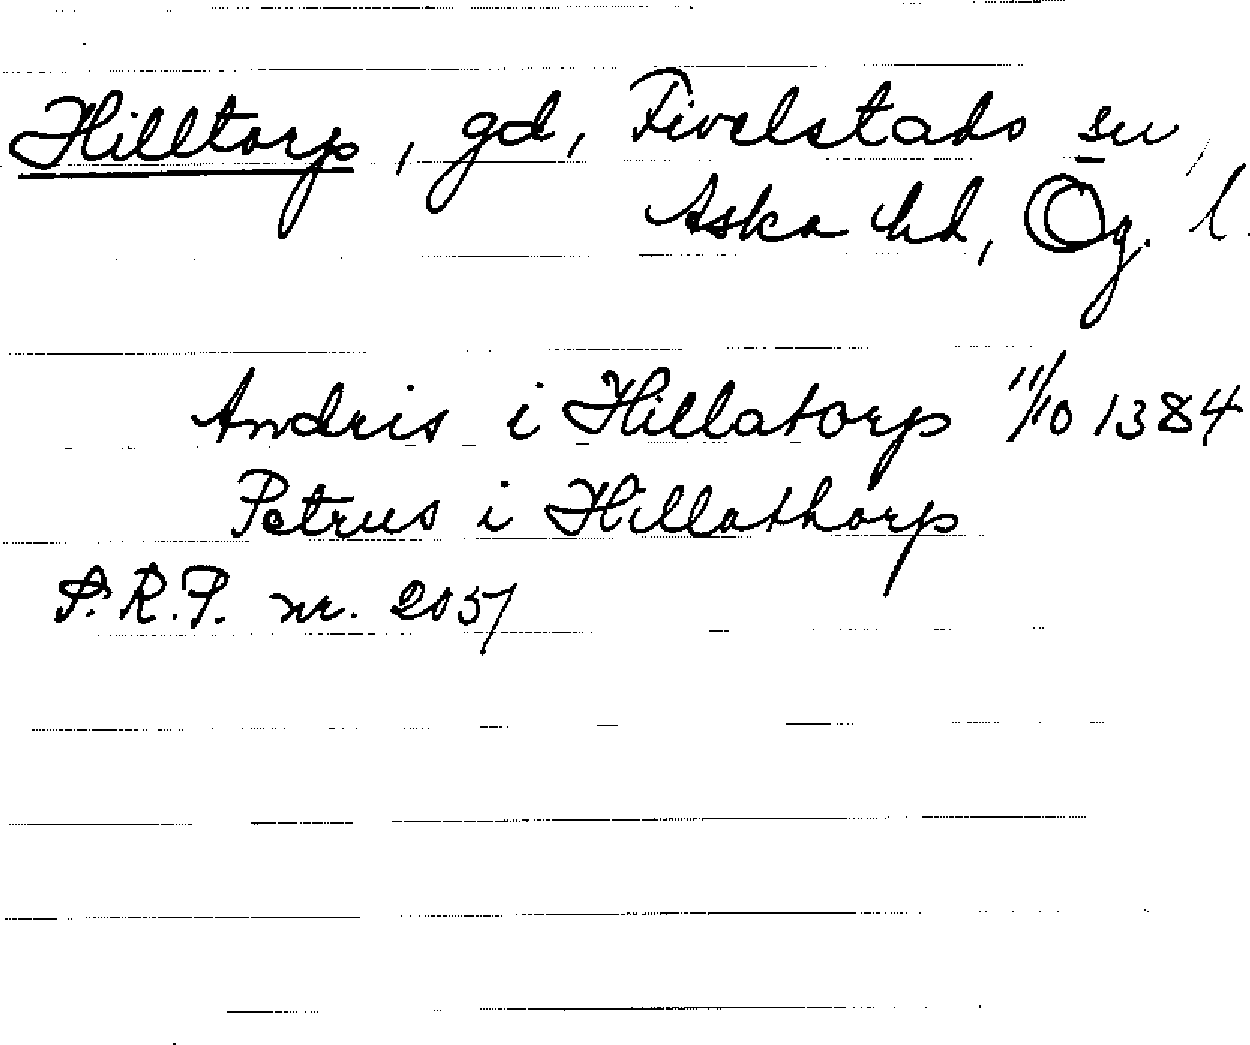 Hilltorp, gd, Fivelstads sn,
Aska hd, Ög. l.
Andris i Hillatorp 11/10 1384
Petrus i Hillathorp
S.R.P. nr. 2057